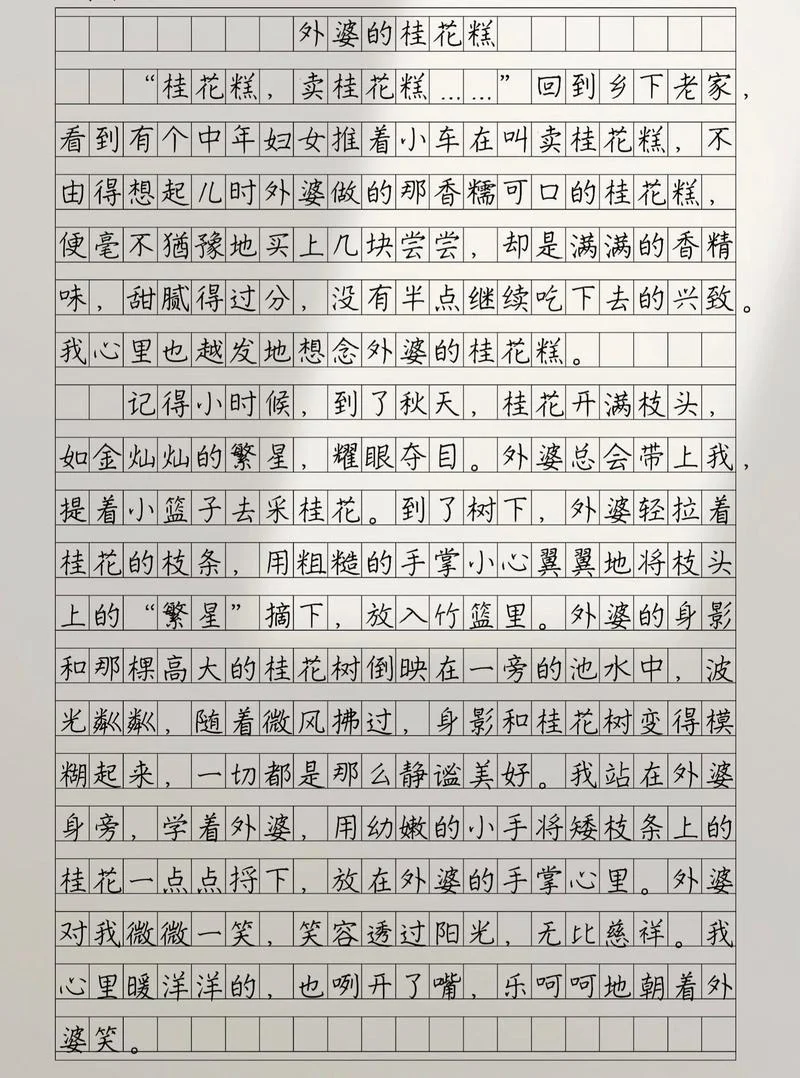 外婆的桂花糕
“桂花糕，卖桂花糕……”回到乡下老家，
看到有个中年妇女推着小车在叫卖桂花糕，不
由得想起儿时外婆做的那香糯可口的桂花糕，
便毫不犹豫地买上几块尝尝，却是满满的香精
味，甜腻得过分，没有半点继续吃下去的兴致。
我心里也越发地想念外婆的桂花糕。
记得小时候，到了秋天，桂花开满枝头，
如金灿灿的繁星，耀眼夺目。外婆总会带上我，
提着小篮子去采桂花。到了树下，外婆轻拉着
桂花的枝条，用粗糙的手掌小心翼翼地将枝头
上的“繁星”摘下，放入竹篮里。外婆的身影
和那棵高大的桂花树倒映在一旁的池水中，波
光粼粼，随着微风拂过，身影和桂花树变得模
糊起来，一切都是那么静谧美好。我站在外婆
身旁，学着外婆，用幼嫩的小手将矮枝条上的
桂花一点点捋下，放在外婆的手掌心里。外婆
对我微微一笑，笑容透过阳光，无比慈祥。我
心里暖洋洋的，也咧开了嘴，乐呵呵地朝着外
婆笑。